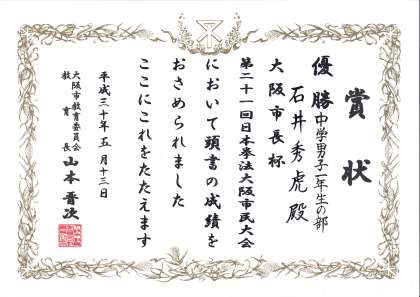 賞状
優勝 中学男子一年生の部
石井秀虎 殿
大阪市長杯
第二十一回日本拳法大阪市民大会
において頭書の成績を
おさめられました
ここにこれをたたえます
平成三十年五月十三日
大阪市教育委員会
教育長 山本晋次